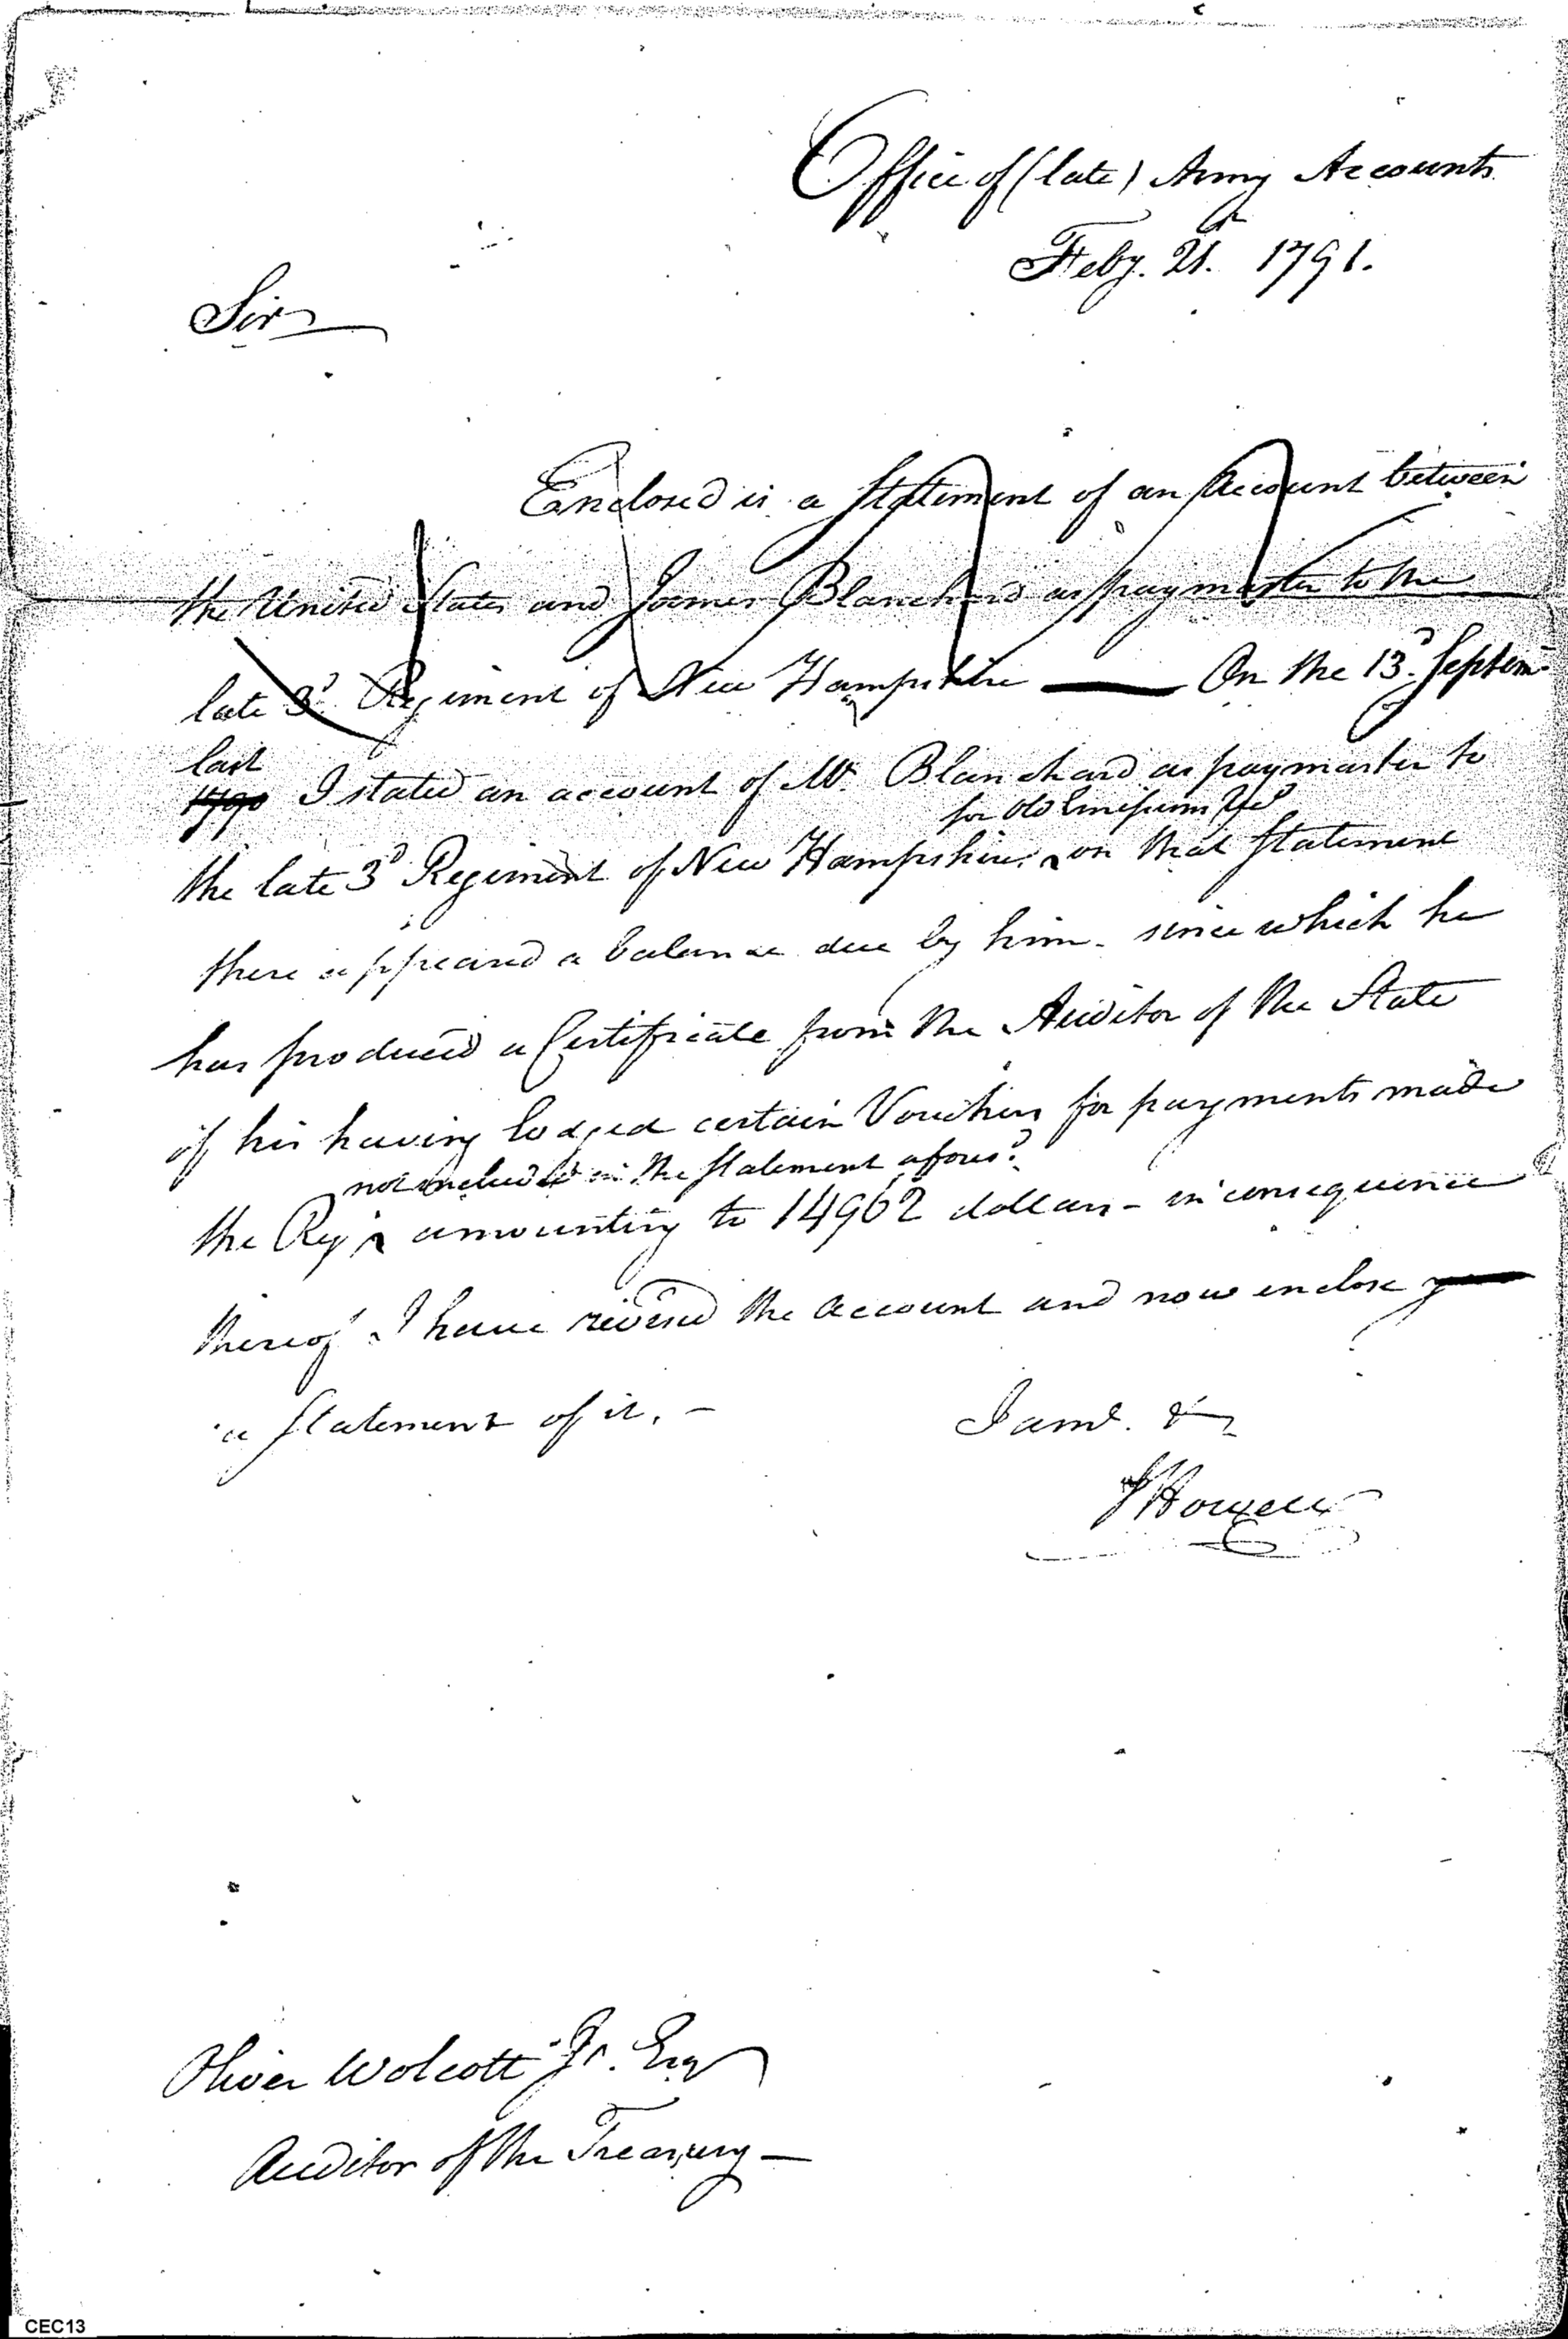 Office of (late) Army Accounts
Feby. 21. 1791.
Sir
Enclosed is a Statement of an Account between
the United States and James Blanchard as paymaster to the
late 3d. Regiment of New Hampshire — On the 13th. Septem
last
1790 I stated an account of Mr. Blanchard as paymaster to
for Old Emissions &c
the late 3d Regiment of New Hampshire. on that Statement
there appeared a balance due by him. since which he
has produced a Certificate from the Auditor of the State
of his having lodged certain Vouchers for payments made
not included in the Statement afores.d
the Reg.t amounting to 14962 dollars - in consequence
thereof I have revised the account and now enclose
a Statement of it. -
I am &
J Howell
Oliver Wolcott Jr. Esq
Auditor of the Treasury —
CEC13